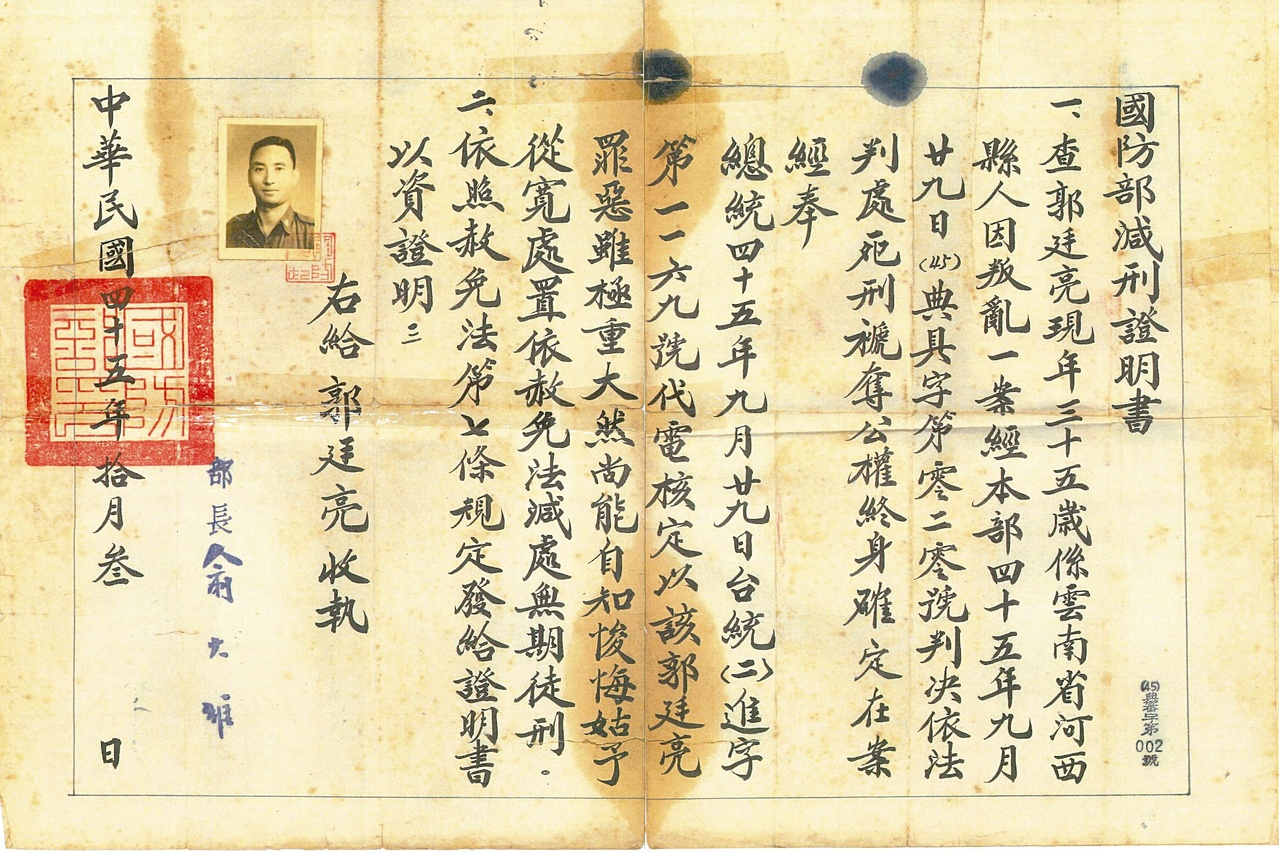 國防部減刑證明書
一、查郭廷亮現年三十五歲係雲南省河西
縣人因叛亂一案經本部四十五年九月
廿九日(45)典具字第零二零號判決依法
判處死刑褫奪公權終身確定在案
經奉
總統四十五年九月廿九日台統(二)進字
第一一六九號代電核定以該郭廷亮
罪惡雖極重大然尚能自知悛悔姑予
從寬處置依赦免法減處無期徒刑。
二、依照赦免法第七條規定發給證明書
以資證明三
右給 郭廷亮 收執
部長俞大維
中華民國四十五年拾月叁日
國防部印
(45)典審字第
002
號